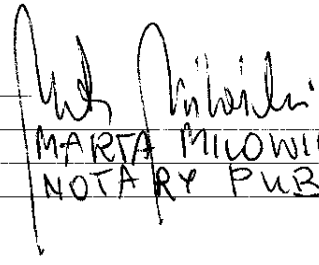 MARTA MILOWI
NOTARY PUB